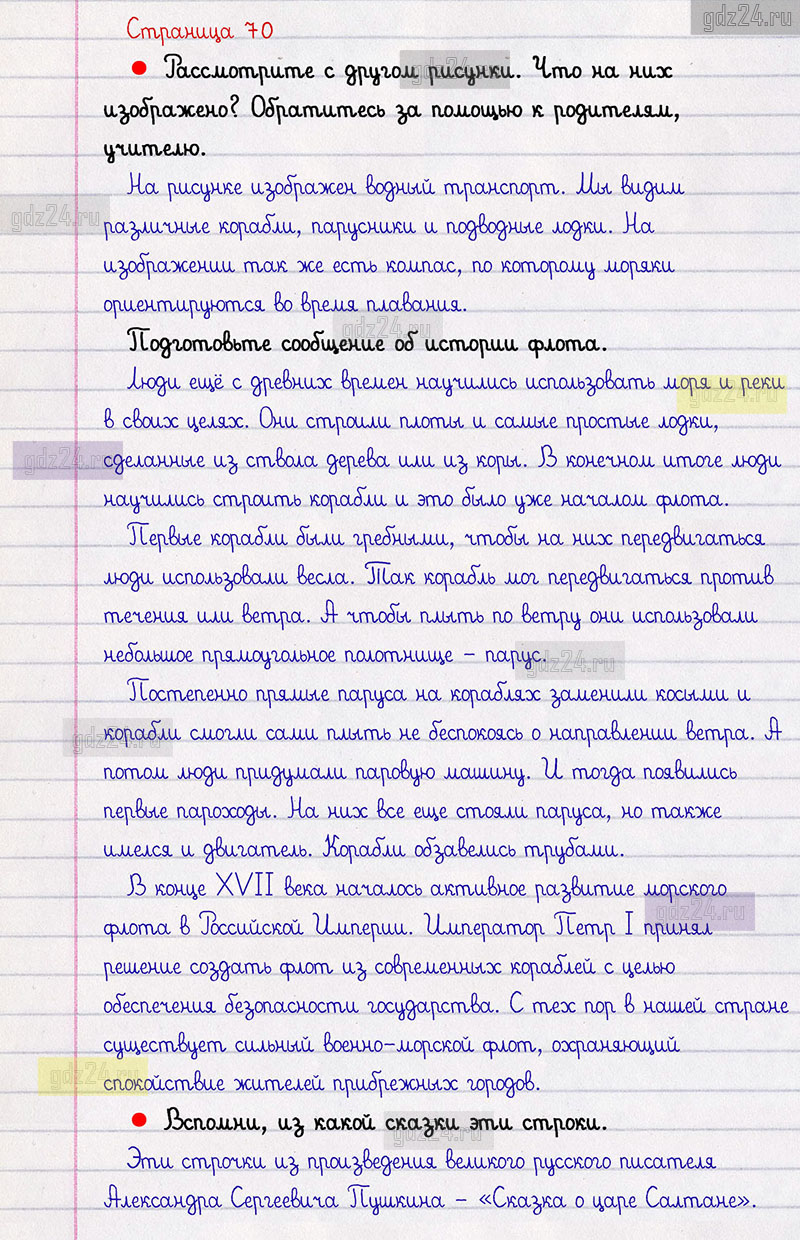 gdz24.ru
Страница 70
gdz24.ru
• Рассмотрите с другом рисунки. Что на них
изображено? Обратитесь за помощью к родителям,
учителю.
На рисунке изображен водный транспорт. Мы видим
gdz24.ru
различные корабли, парусники и подводные лодки. На
изображении так же есть компас, по которому моряки
ориентируются во время плавания.
gdz24.ru
Подготовьте сообщение об истории флота.
Люди ещё с древних времен научились использовать моря и реки
gdz24.ru
в своих целях. Они строили плоты и самые простые лодки,
gdz24.ru
сделанные из ствола дерева или из коры. В конечном итоге люди
научились строить корабли и это было уже началом флота.
Первые корабли были гребными, чтобы на них передвигаться
люди использовали весла. Так корабль мог передвигаться против
течения или ветра. А чтобы плыть по ветру они использовали
небольшое прямоугольное полотнище – парус.
gdz24.ru
Постепенно прямые паруса на кораблях заменили косыми и
gdz24.ru
корабли смогли сами плыть не беспокоясь о направлении ветра. А
потом люди придумали паровую машину. И тогда появились
первые пароходы. На них все еще стояли паруса, но также
имелся и двигатель. Корабли обзавелись трубами.
В конце XVII века началось активное развитие морского
gdz24.ru
флота в Российской Империи. Император Петр I принял
решение создать флот из современных кораблей с целью
обеспечения безопасности государства. С тех пор в нашей стране
существует сильный военно-морской флот, охраняющий
gdz24.ru
спокойствие жителей прибрежных городов.
• Вспомни, из какой сказки эти строки.
gdz24.ru
Эти строчки из произведения великого русского писателя
Александра Сергеевича Пушкина – «Сказка о царе Салтане».